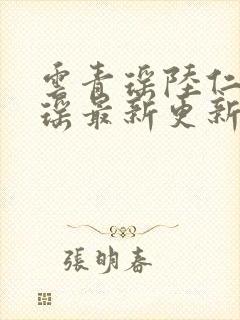 雲青瑶陸仁
瑶最新更新
張明春